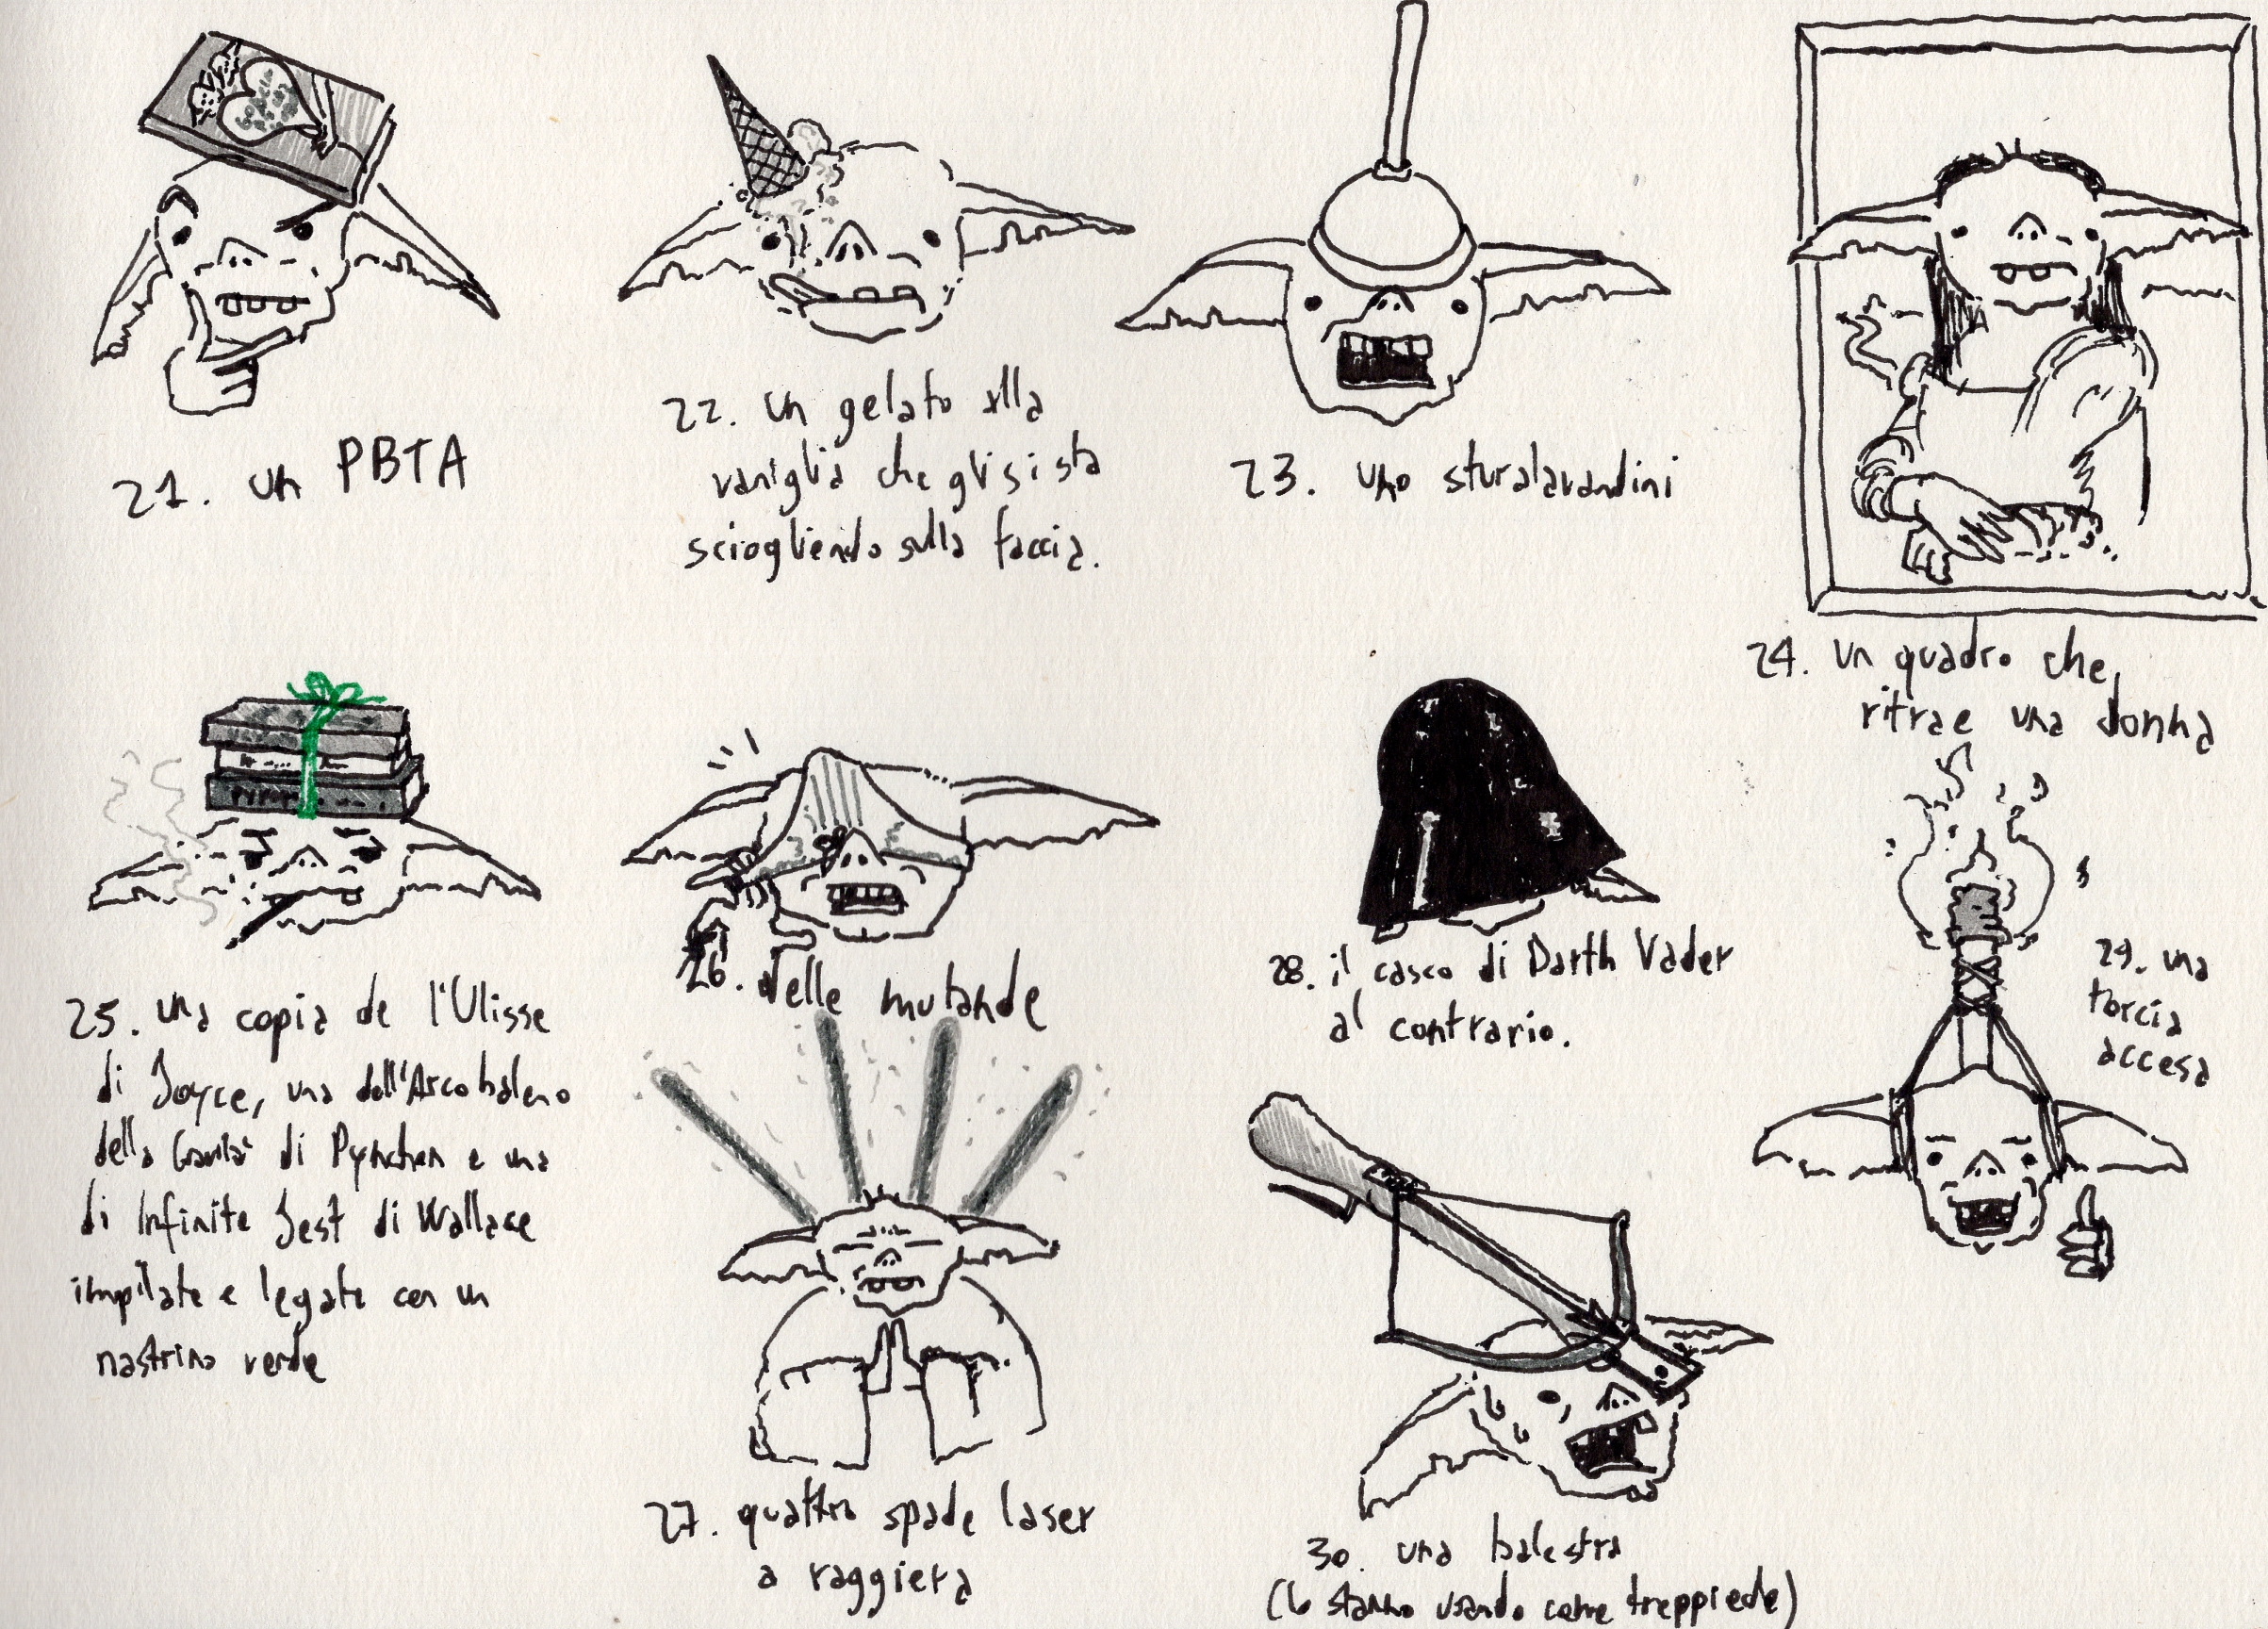 21. un PBTA
22. un gelato alla
vaniglia che gli si sta
sciogliendo sulla faccia.
23. uno sturalavandini
24. un quadro che
ritrae una donna
25. una copia de l'Ulisse
di Joyce, una dell'Arcobaleno
della Gravità di Pynchon e una
di Infinite Jest di Wallace
impilate e legate con un
nastrino verde
26. delle mutande
27. quattro spade laser
a raggiera
28. il casco di Darth Vader
al contrario.
29. una
torcia
accesa
30. una balestra
(lo stanno usando come treppiede)